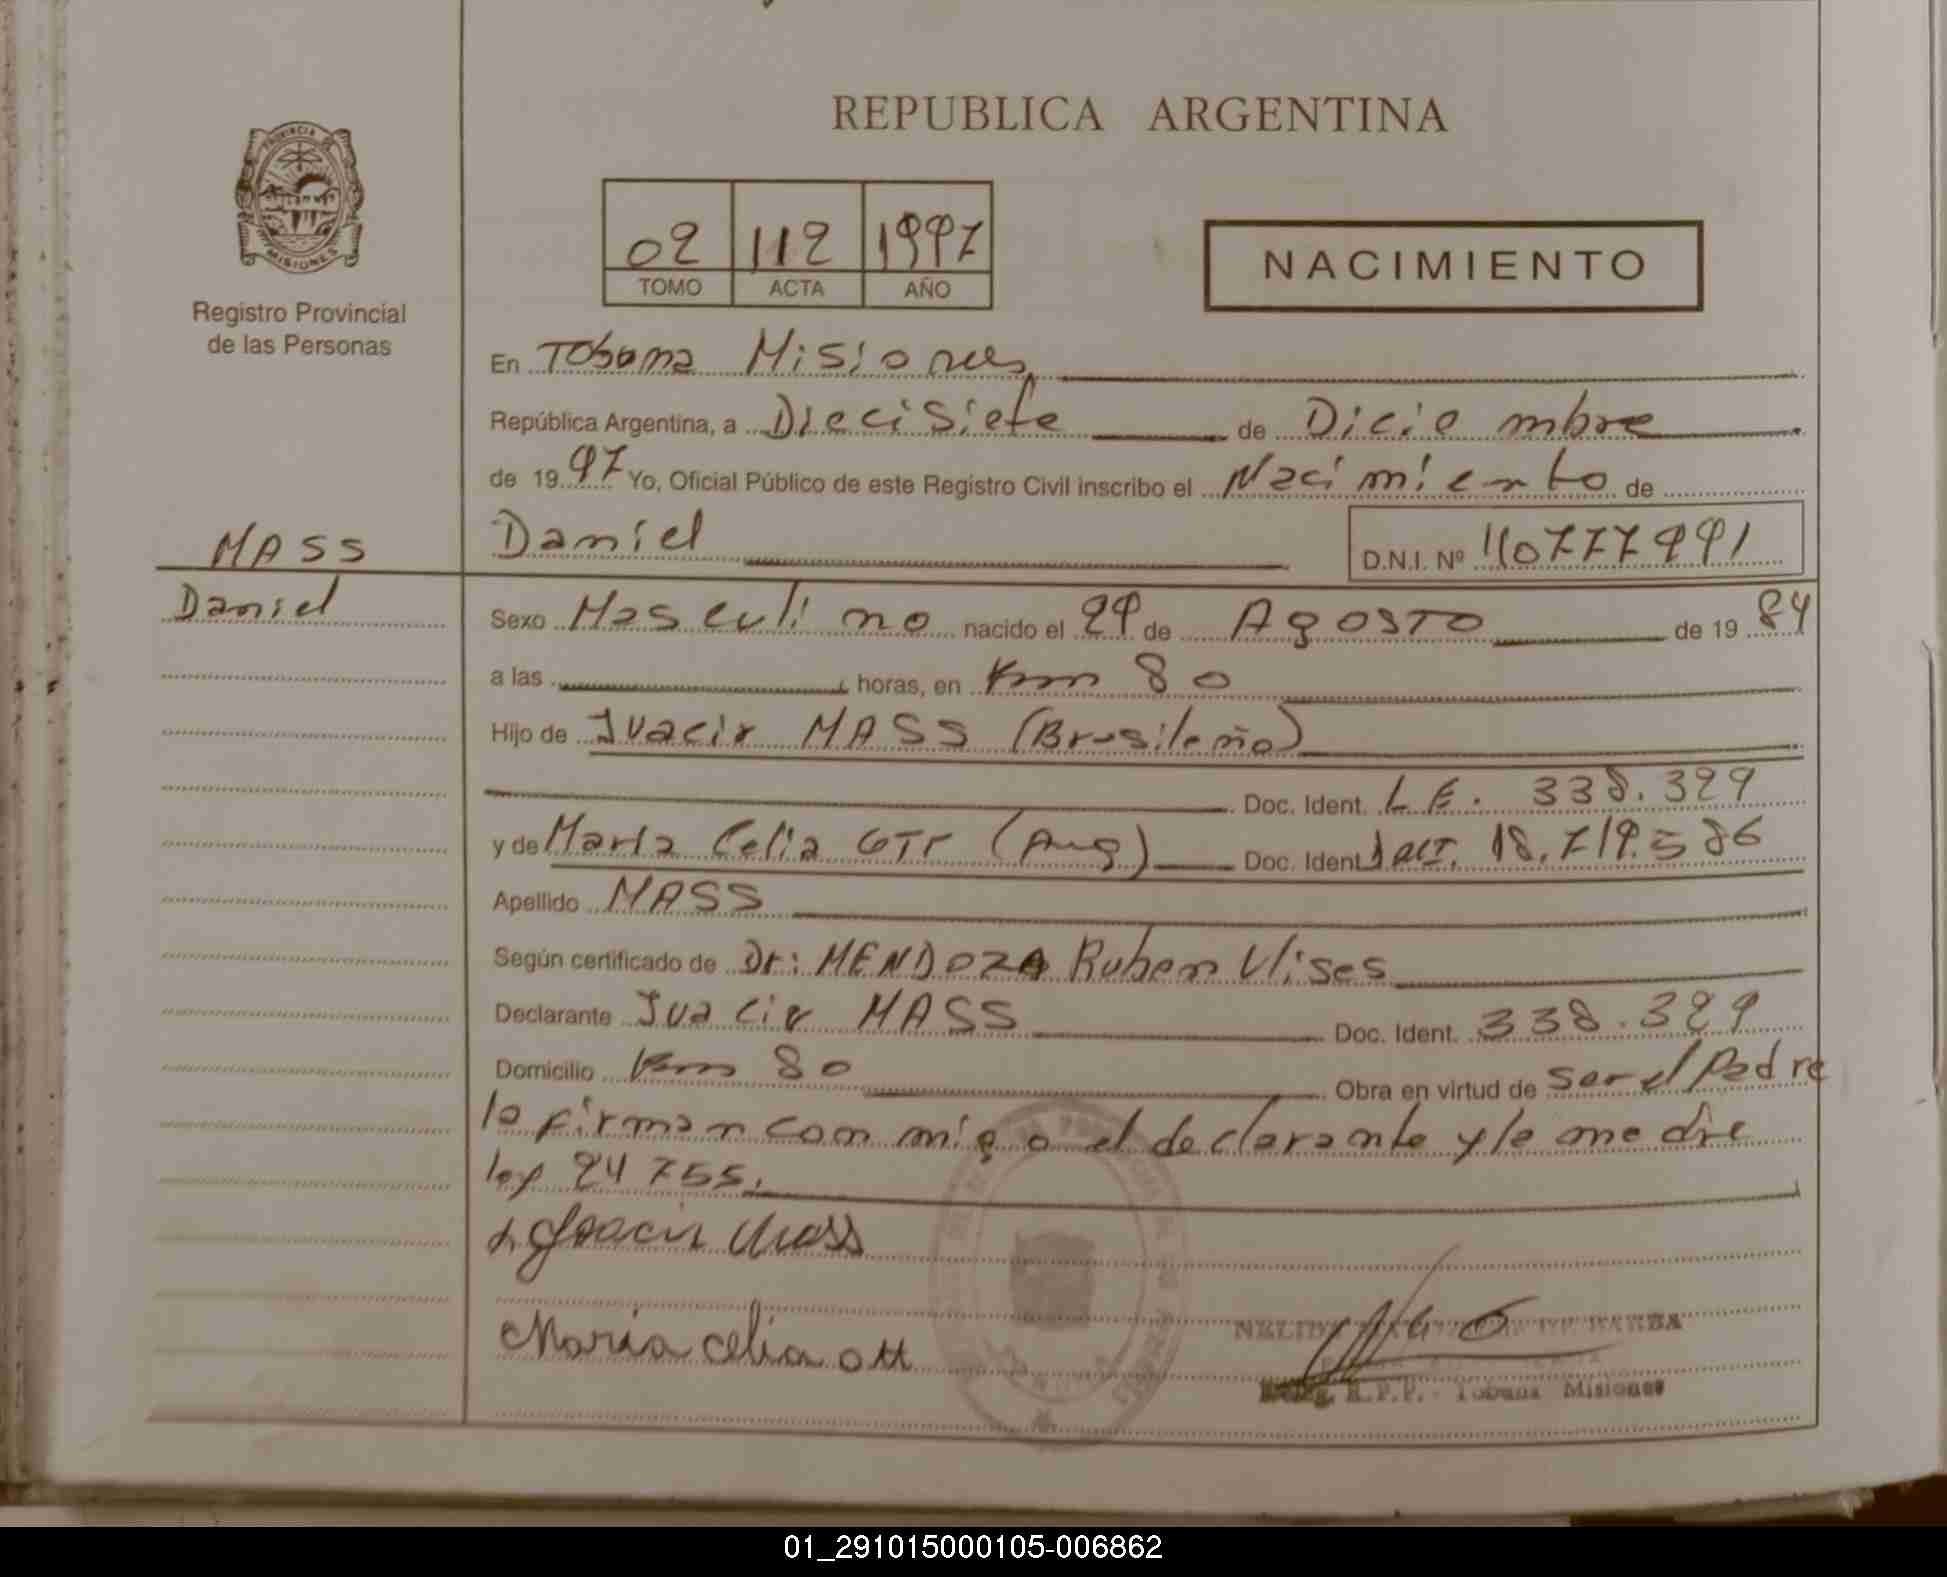 REPUBLICA ARGENTINA
PROVINCIA DE
MISIONES
Registro Provincial
de las Personas
02 112 1997
TOMO ACTA AÑO
NACIMIENTO
En Tobuna Misiones
República Argentina, a Diecisiete de Diciembre
de 1997 Yo, Oficial Público de este Registro Civil inscribo el Nacimiento de
MASS
Daniel
Daniel D.N.I. Nº 110777991
Sexo Masculino nacido el 29 de Agosto de 1984
a las horas, en Km 80
Hijo de Ivacir MASS (Brasileño)
Doc. Ident. L.E. 338.329
y de María Celia OTT (Arg) Doc. Ident. 18.719.586
Apellido MASS
Según certificado de Dr: MENDOZA Ruben Ulises
Declarante Ivacir MASS Doc. Ident. 338.329
Domicilio Km 80 Obra en virtud de ser el Padre
lo firman conmigo el declarante y la madre
ley 24755.
Ivacir Mass
Maria Celia Ott
DE BARBA
R.P.P. Tobuna Misiones
01_291015000105-006862